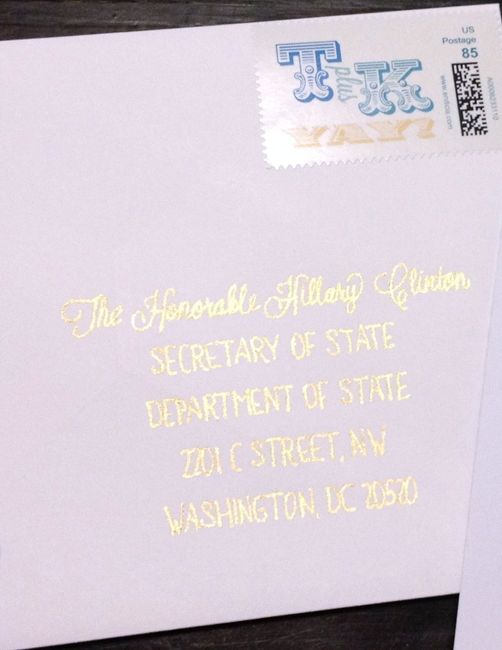 US
Postage
85
T plus K
YAY!
www.endicia.com
The Honorable Hillary Clinton
SECRETARY OF STATE
DEPARTMENT OF STATE
2201 C STREET, NW
WASHINGTON, DC 20520